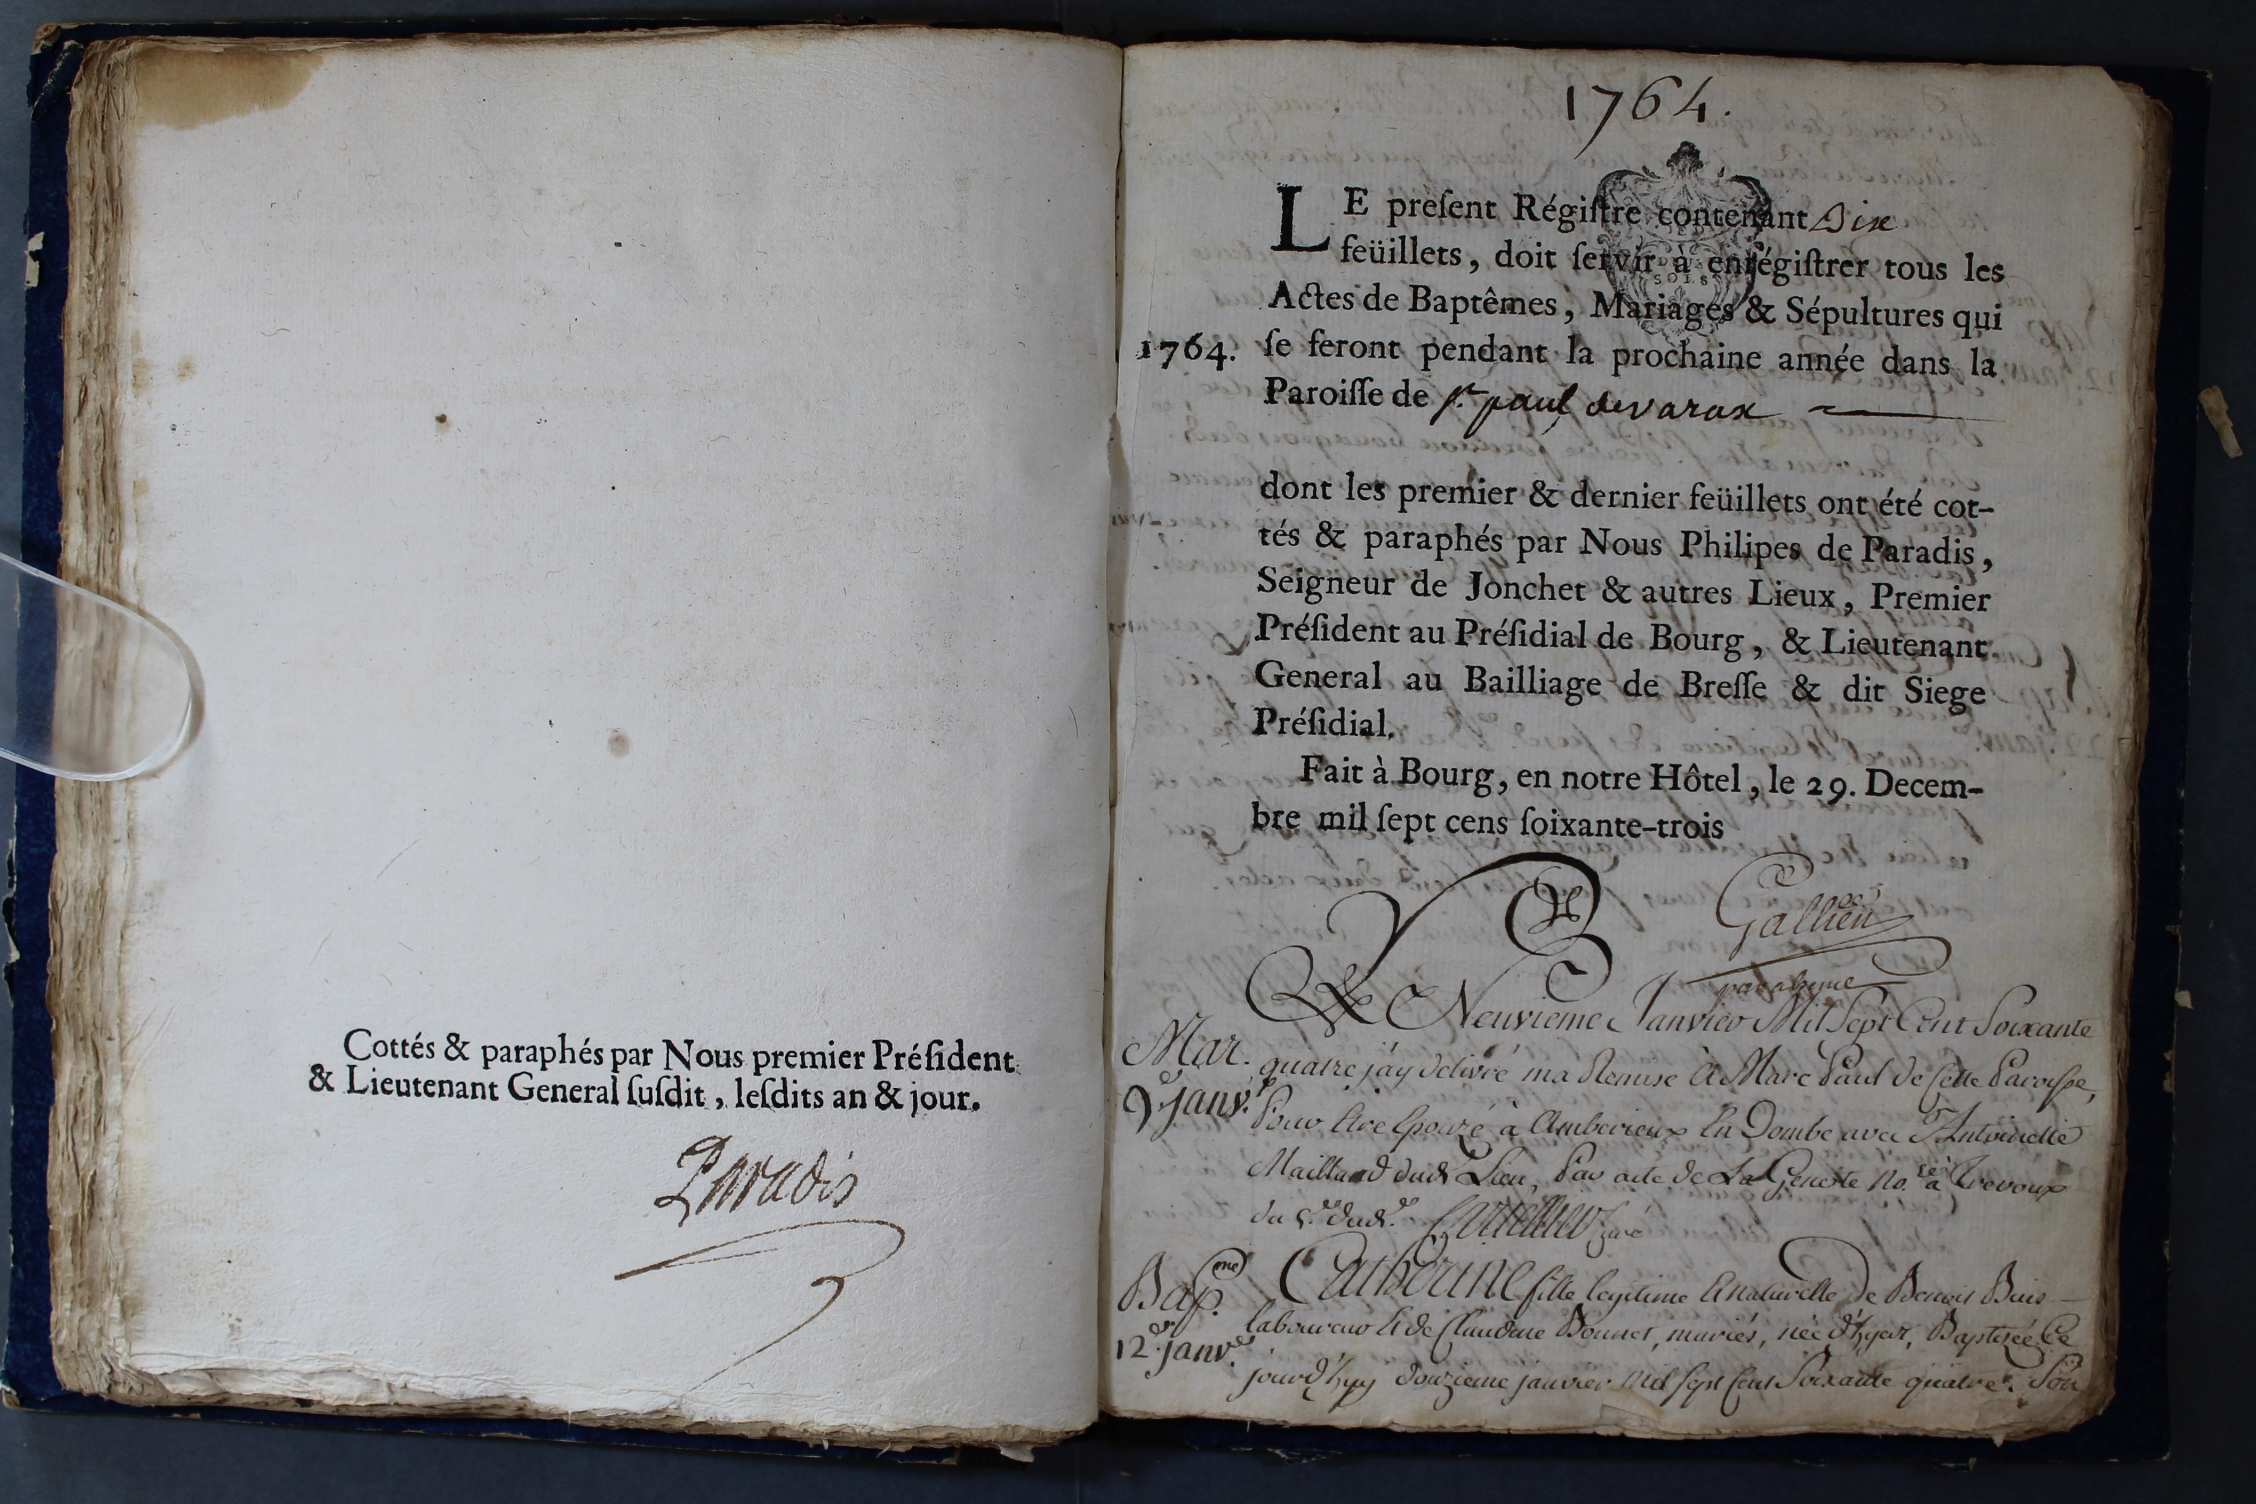 Cottés & paraphés par Nous premier Préſident
& Lieutenant General ſuſdit, leſdits an & jour.
Paradis
1764.
LE preſent Régiſtre contenant Dix
feüillets, doit ſervir à enrégiſtrer tous les
Actes de Baptêmes, Mariages & Sépultures qui
1764. ſe feront pendant la prochaine année dans la
Paroiſſe de St paul devarax
dont les premier & dernier feüillets ont été cot-
tés & paraphés par Nous Philipes de Paradis,
Seigneur de Jonchet & autres Lieux, Premier
Préſident au Préſidial de Bourg, & Lieutenant
General au Bailliage de Breſſe & dit Siege
Préſidial.
Fait à Bourg, en notre Hôtel, le 29. Decem-
bre mil ſept cens ſoixante-trois
Gallien
Le Neuvieme Janvier Mil Sept Cent Soixante
Mar. quatre j'ay delivré ma Remise à Marc Paul de Cette Paroisse,
9. janv. Pour Etre Epouzé à Amberieux En Dombe avec Antoinette
Maillard dud. Lieu, Par acte de La Geneste No.re à Trevoux
du 5. dud.
Bap.me Catherine fille legitime & naturelle de Benoit Buis
laboureur & de Claudine Bonnet, mariés, née d'hyer, Baptisée Ce
12. janv. jourd'huy douzieme janvier mil sept Cent Soixante quatre. Son